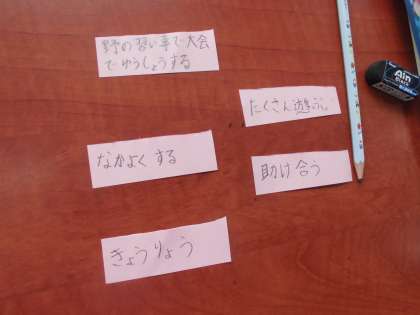 野の習い事で大会
でゆうしょうする
たくさん遊ぶ
なかよくする
助け合う
きょうりょう
Ain